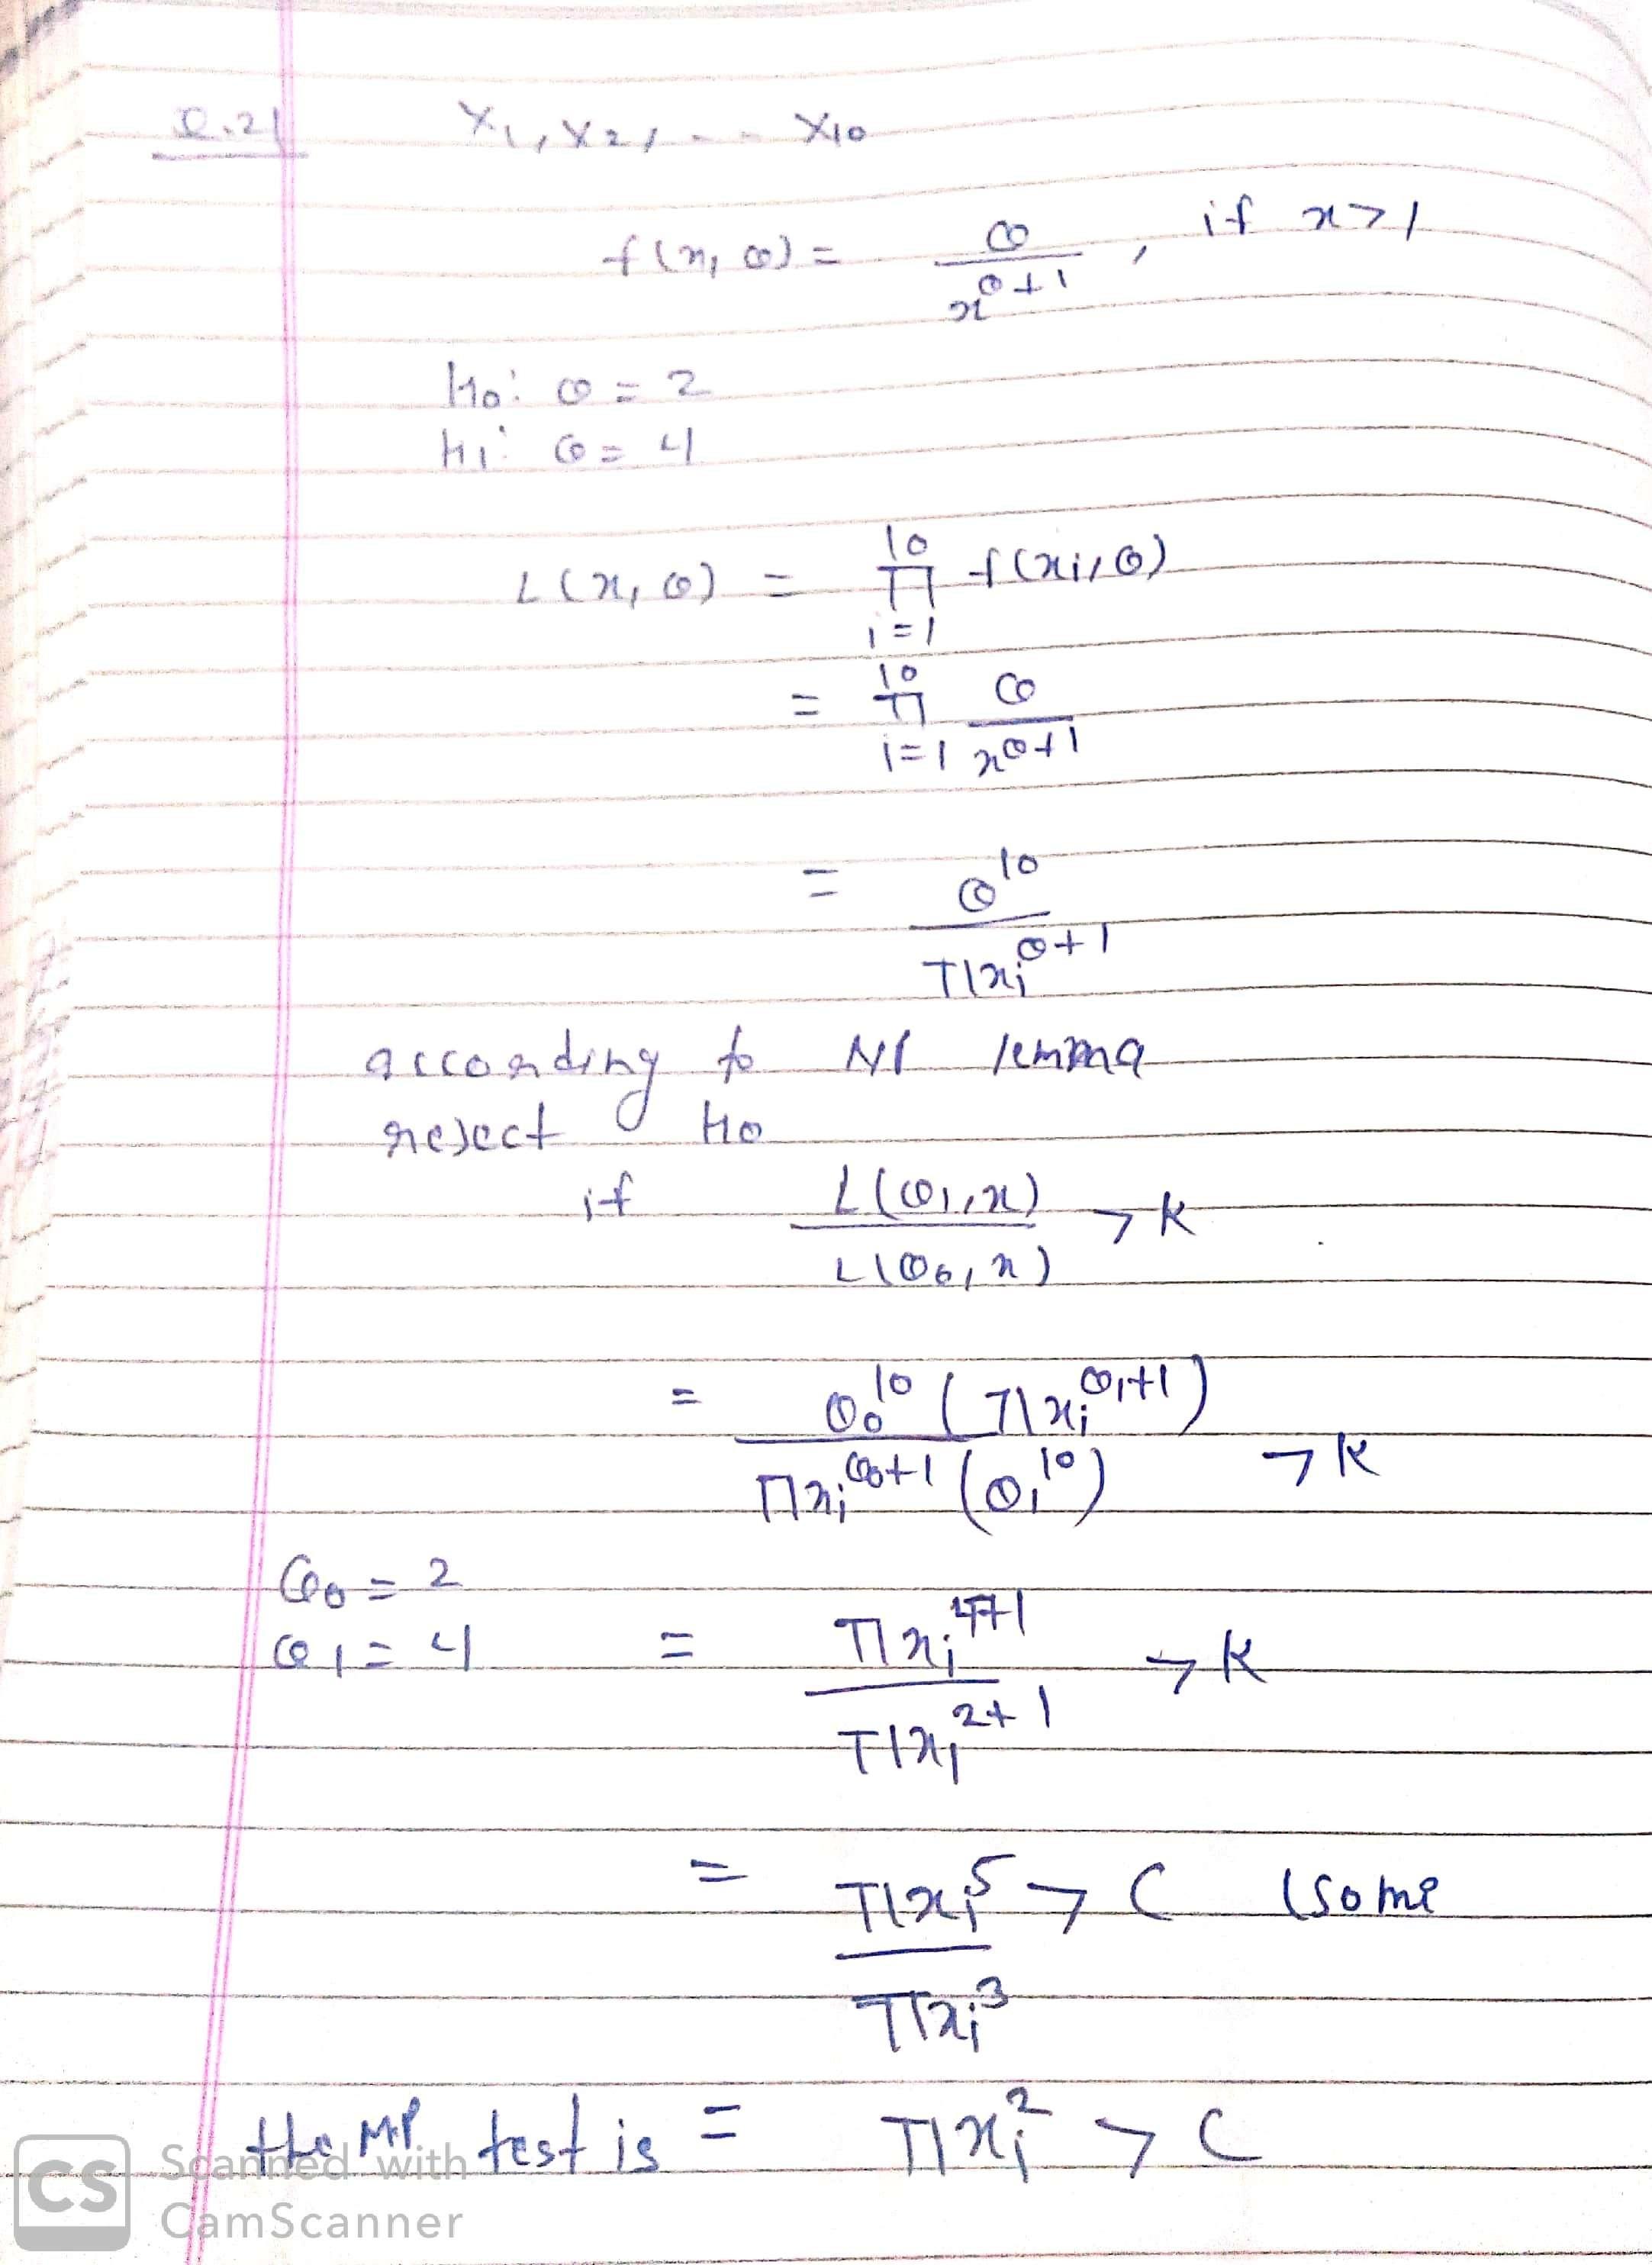 Q.21 X₁, X₂, -- X₁₀
f(x, θ) = θ / x^(θ+1) , if x > 1
H₀: θ = 2
H₁: θ = 4
L(x, θ) = ∏_{i=1}^{10} f(xᵢ, θ)
= ∏_{i=1}^{10} θ / x^(θ+1)
= θ^10 / ∏xᵢ^(θ+1)
according to NP lemma
reject H₀
if L(θ₁, x) / L(θ₀, x) > K
= θ₀^10 (∏xᵢ^(θ₁+1)) / ∏xᵢ^(θ₀+1) (θ₁^10) > K
θ₀ = 2
θ₁ = 4 = ∏xᵢ^(4+1) / ∏xᵢ^(2+1) > K
= ∏xᵢ^5 / ∏xᵢ^3 > C (some
the MP test is = ∏xᵢ² > C
CS Scanned with
CamScanner